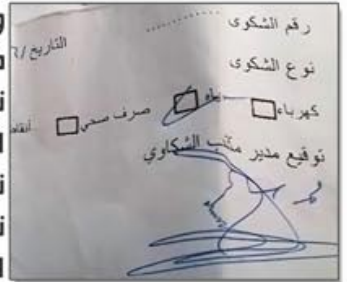 رقم الشكوى ............
التاريخ /
نوع الشكوى
كهرباء مياه صرف صحي
توقيع مدير مكتب الشكاوي